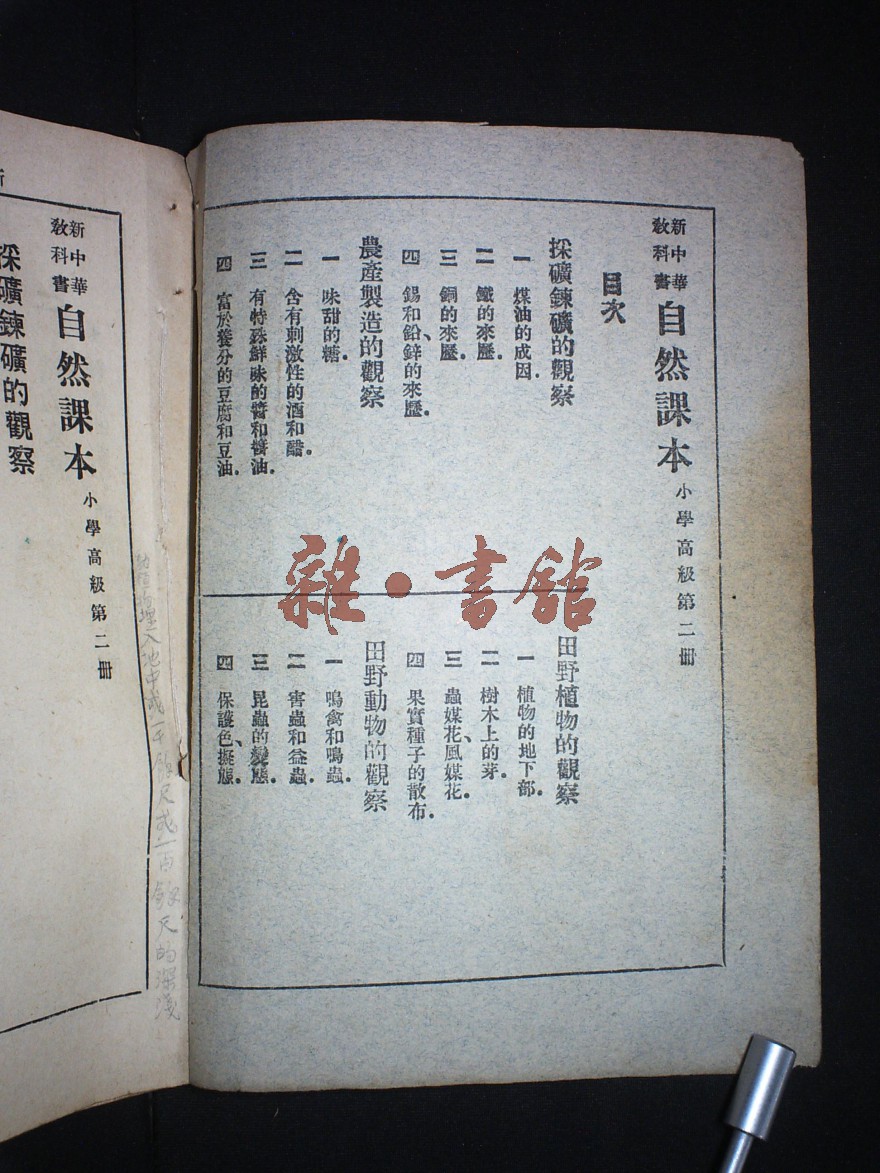 新中華
教科書
自然課本
小學高級第二冊
目次
採礦鍊礦的觀察
一 煤油的成因．
二 鐵的來歷．
三 銅的來歷．
四 錫和鉛、鋅的來歷．
農產製造的觀察
一 味甜的糖．
二 含有刺激性的酒和醋．
三 有特殊鮮味的醬和醬油．
四 富於養分的豆腐和豆油．
田野植物的觀察
一 植物的地下部．
二 樹木上的芽．
三 蟲媒花、風媒花．
四 果實種子的散布．
田野動物的觀察
一 鳴禽和鳴蟲．
二 害蟲和益蟲．
三 昆蟲的變態．
四 保護色、擬態．
雜・書館
新中華
教科書
自然課本
小學高級第二冊
採礦鍊礦的觀察
埋入地中或一千餘尺或二百餘尺的深淺